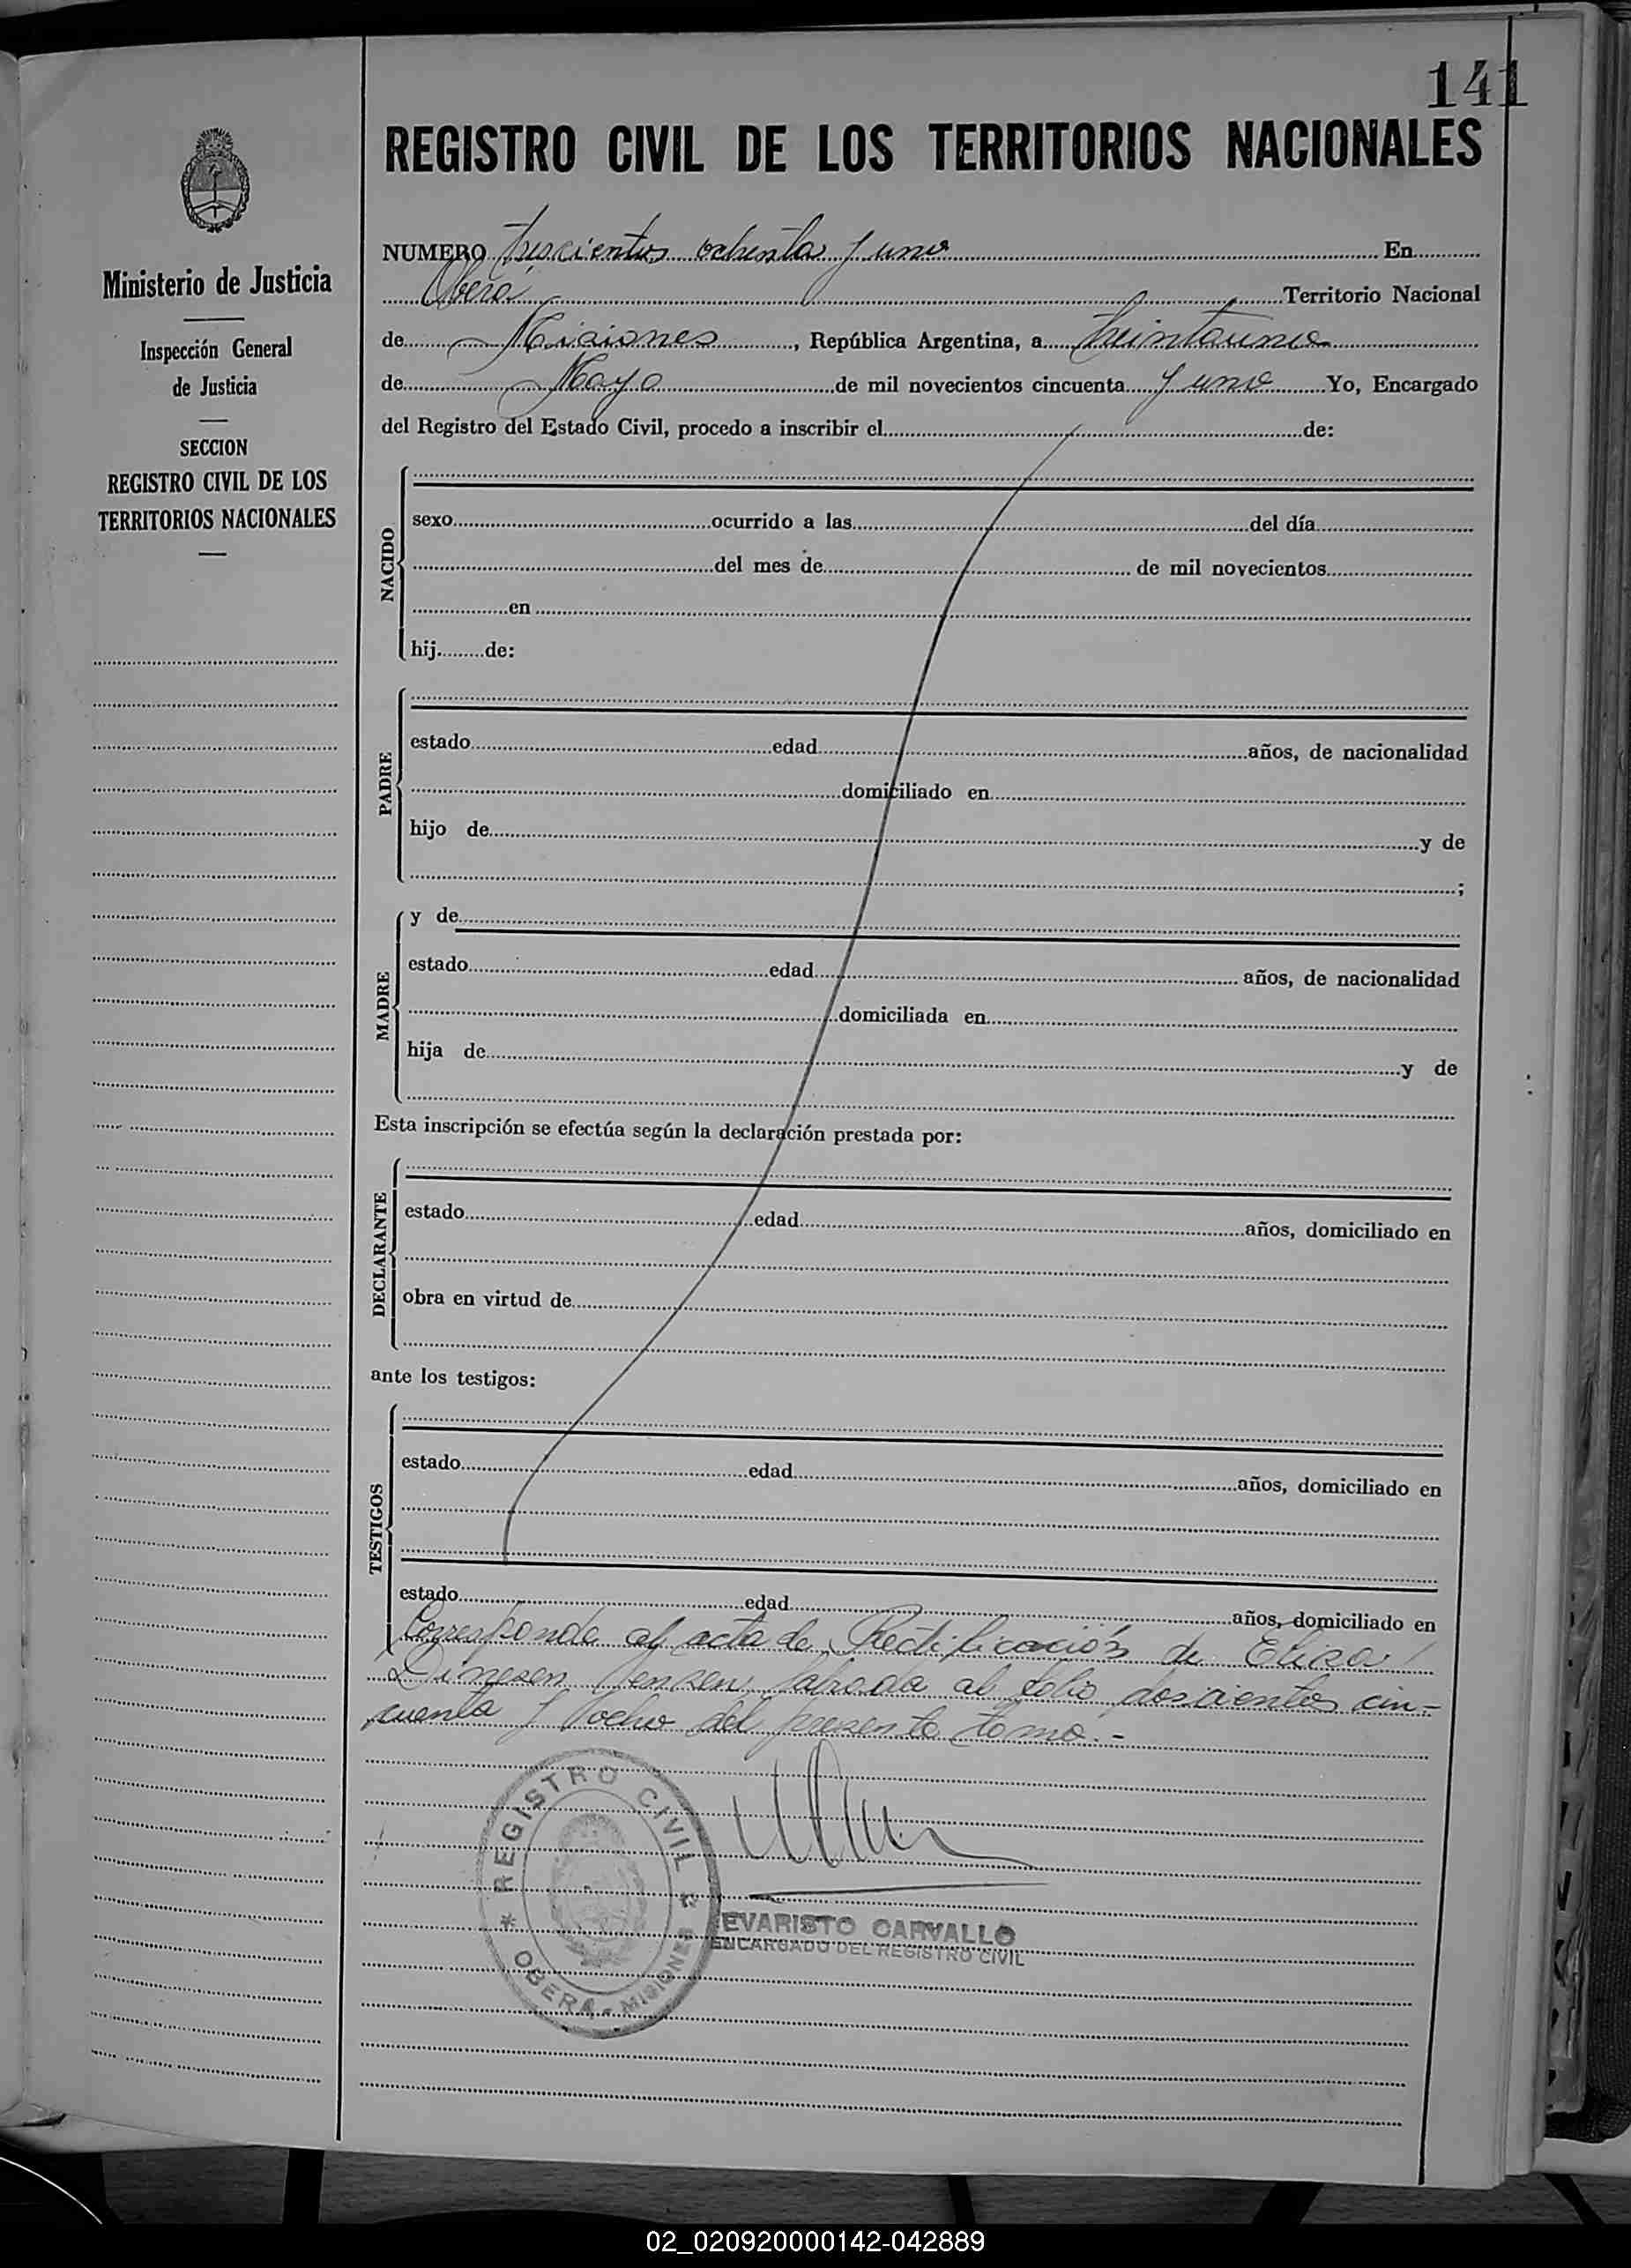 141
REGISTRO CIVIL DE LOS TERRITORIOS NACIONALES
Ministerio de Justicia
Inspección General
de Justicia
SECCION
REGISTRO CIVIL DE LOS
TERRITORIOS NACIONALES
NUMERO trescientos ochenta y uno En
Oberá Territorio Nacional
de Misiones, República Argentina, a treintauno
de Mayo de mil novecientos cincuenta y uno Yo, Encargado
del Registro del Estado Civil, procedo a inscribir el de:
NACIDO
sexo ocurrido a las del día
del mes de de mil novecientos
en
hij de:
PADRE
estado edad años, de nacionalidad
domiciliado en
hijo de y de
;
MADRE
y de
estado edad años, de nacionalidad
domiciliada en
hija de y de
Esta inscripción se efectúa según la declaración prestada por:
DECLARANTE
estado edad años, domiciliado en
obra en virtud de
ante los testigos:
TESTIGOS
estado edad años, domiciliado en
estado edad años, domiciliado en
Corresponde al acta de Rectificación de Elisa
Dinesen Jensen, labrada al folio doscientos cin-
cuenta y ocho del presente tomo.-
REGISTRO CIVIL
OBERÁ - MISIONES
EVARISTO CARVALLO
ENCARGADO DEL REGISTRO CIVIL
02_020920000142-042889